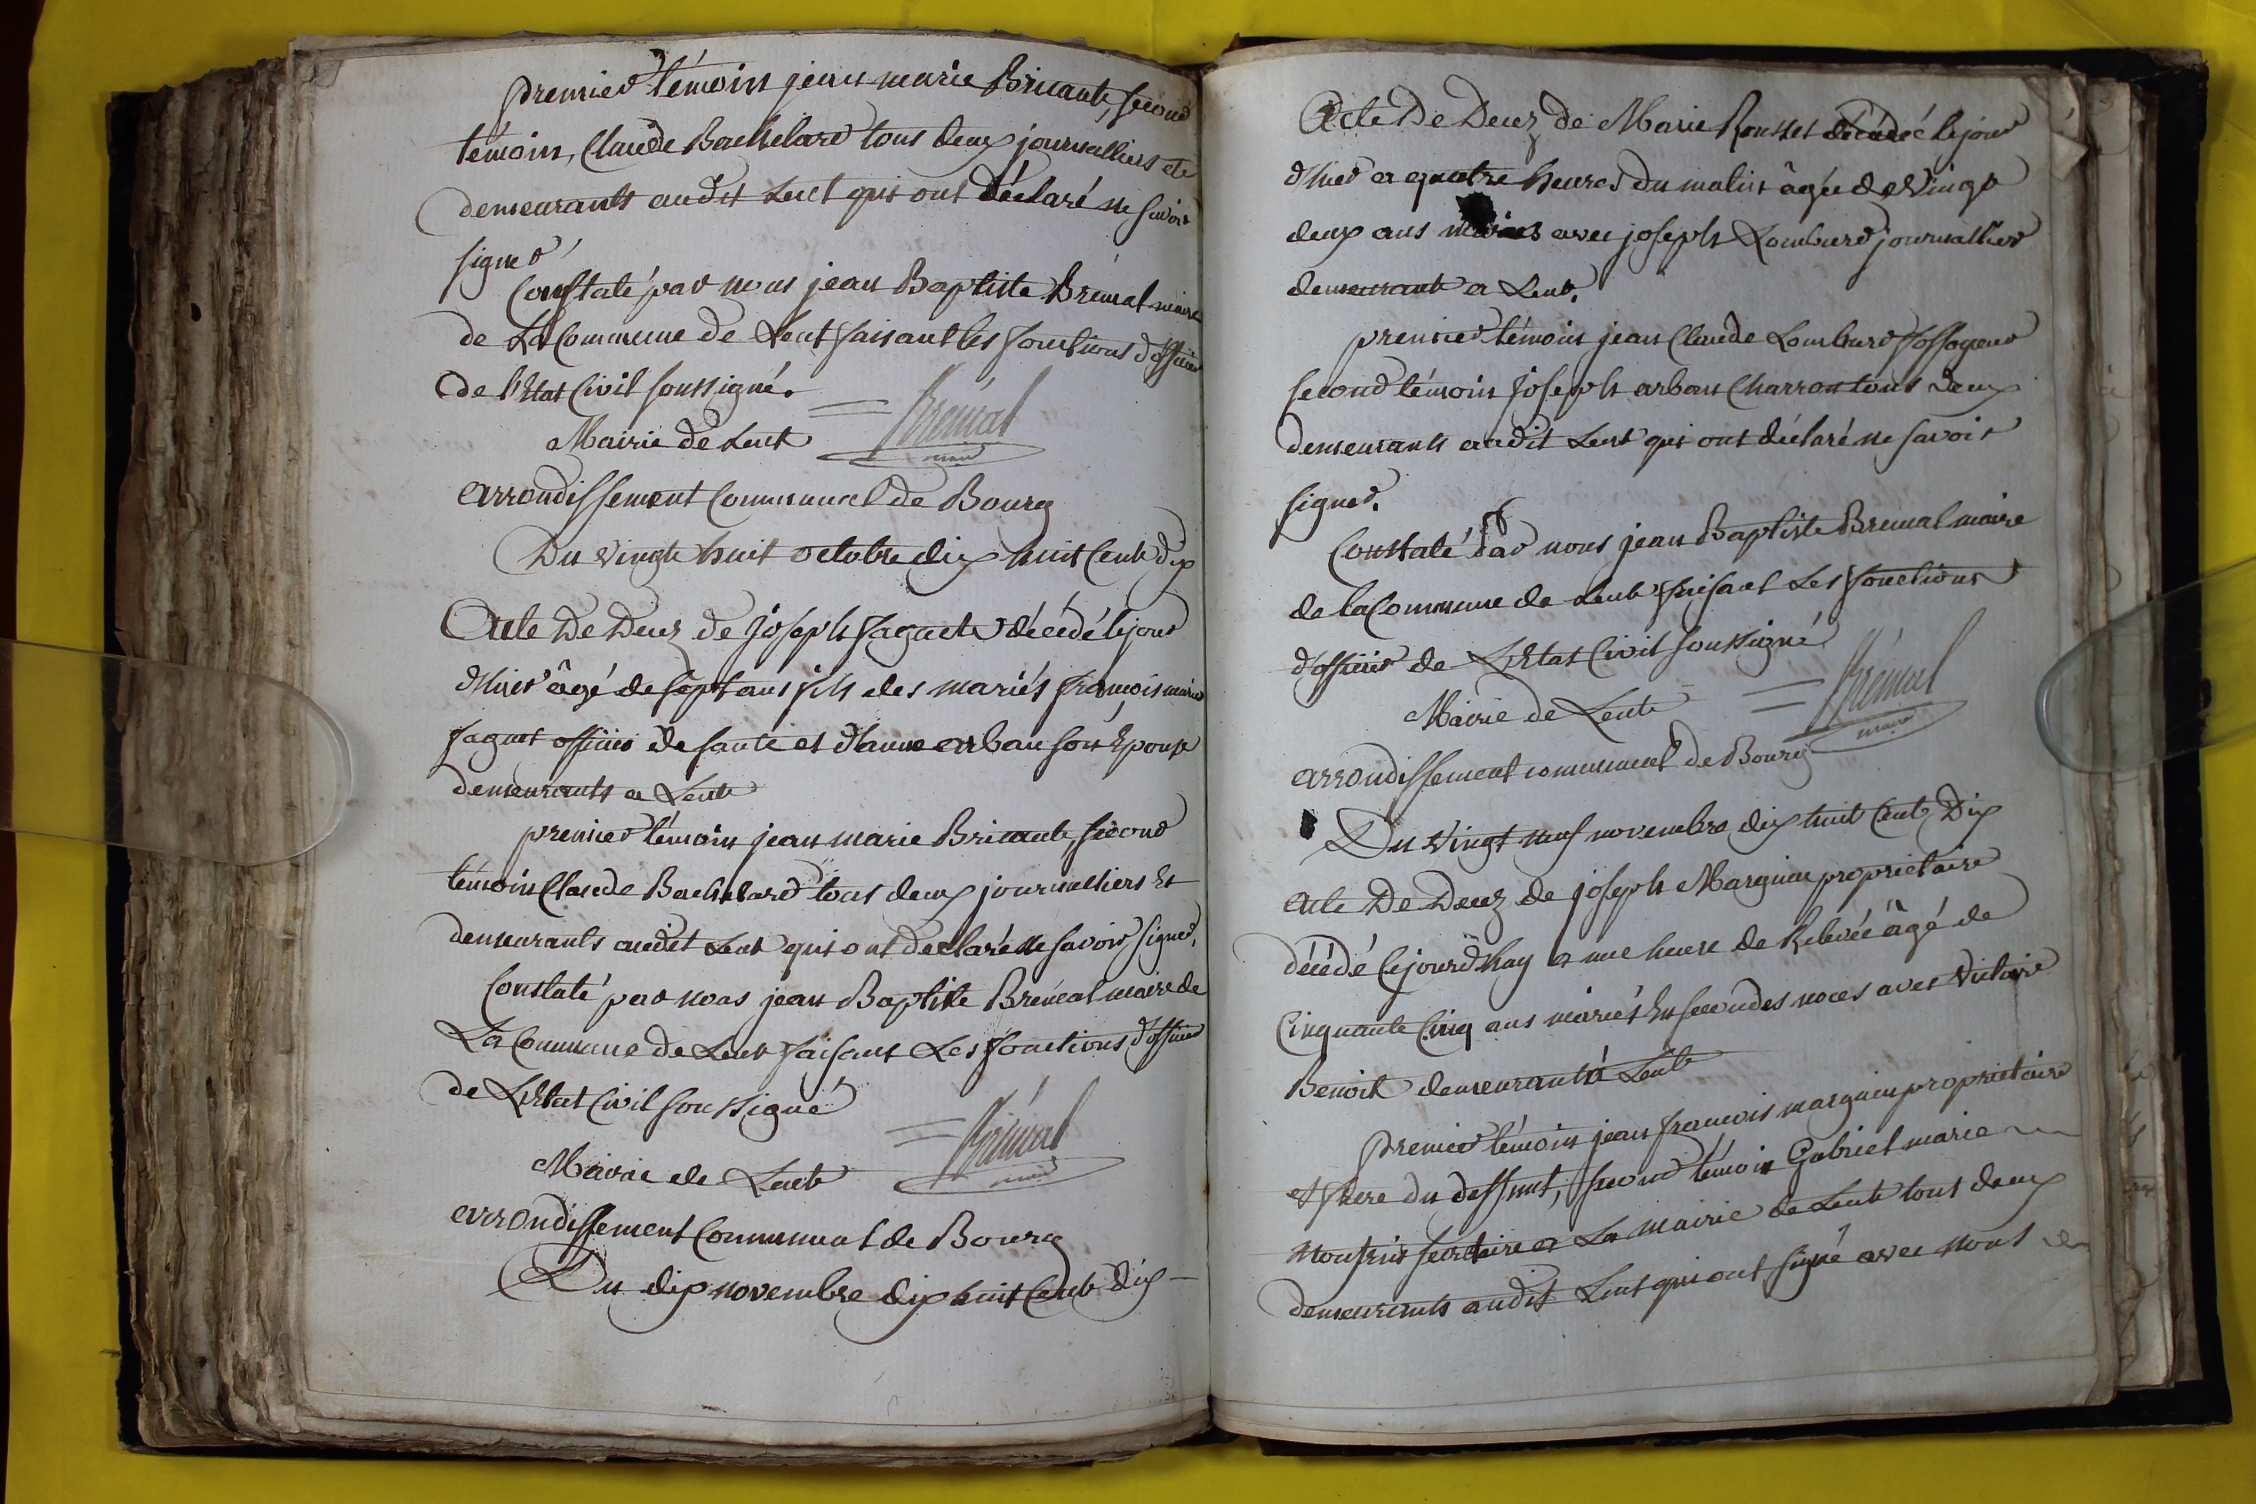 premier témoin jean marie Bricaute, second
témoin, Claude Bachelard tous deux journalliers et
demeurants audit Lent qui ont déclaré ne savoir
signer
Constaté par nous jean Baptiste Brémal maire
de La Commune de Lent faisant les fonctions d'officier
de l'Etat Civil soussigné.
Brémal
maire
Mairie de Lent
arrondissement Communal de Bourg
Du vingt huit octobre dix huit Cent dix
Acte De Decez de Joseph faguet décédé le jour
d'hier âgé de sept ans fils des mariés françois marie
faguet officier de santé et d'anne arban son Epouse
demeurants a Lent
premier témoin jean marie Bricaute, second
témoin Claude Bachelard tous deux journalliers Et
demeurants audit Lent qui ont déclaré ne savoir signer.
Constaté par nous jean Baptiste Brémal maire de
La Commune de Lent faisant Les fonctions d'officier
de L'Etat Civil soussigné
Brémal
maire
Mairie de Lent
arrondissement Communal de Bourg
Du dix novembre dix huit Cent dix
Acte De Decez de Marie Rousset décédée le jour
d'hier a quatre heures du matin âgée de Vingt
deux ans mariée avec joseph Lombard journallier
demeurante a Lent.
premier témoin jean Claude Lombard fossoyeur
second témoin Joseph arban Charron tous deux
demeurants audit Lent qui ont déclaré ne savoir
signer.
Constaté par nous jean Baptiste Bremal maire
de la Commune de Lent faisant Les fonctions
d'officier de L'Etat Civil soussigné
Brémal
maire
Mairie de Lent
arrondissement communal de Bourg
Du Vingt neuf novembre dix huit Cent Dix
acte De Decez de joseph Marguin proprietaire
décédé Cejourdhuy a une heure de Relevée âgé de
Cinquante Cinq ans mariés En secondes noces avec Victoire
Benoit demeurant à Lent
premier témoin jean françois marguin proprietaire
et frere du deffunt, second témoin Gabriel marie
secretaire a La mairie de Lent tous deux
demeurants audit Lent qui ont signé avec nous